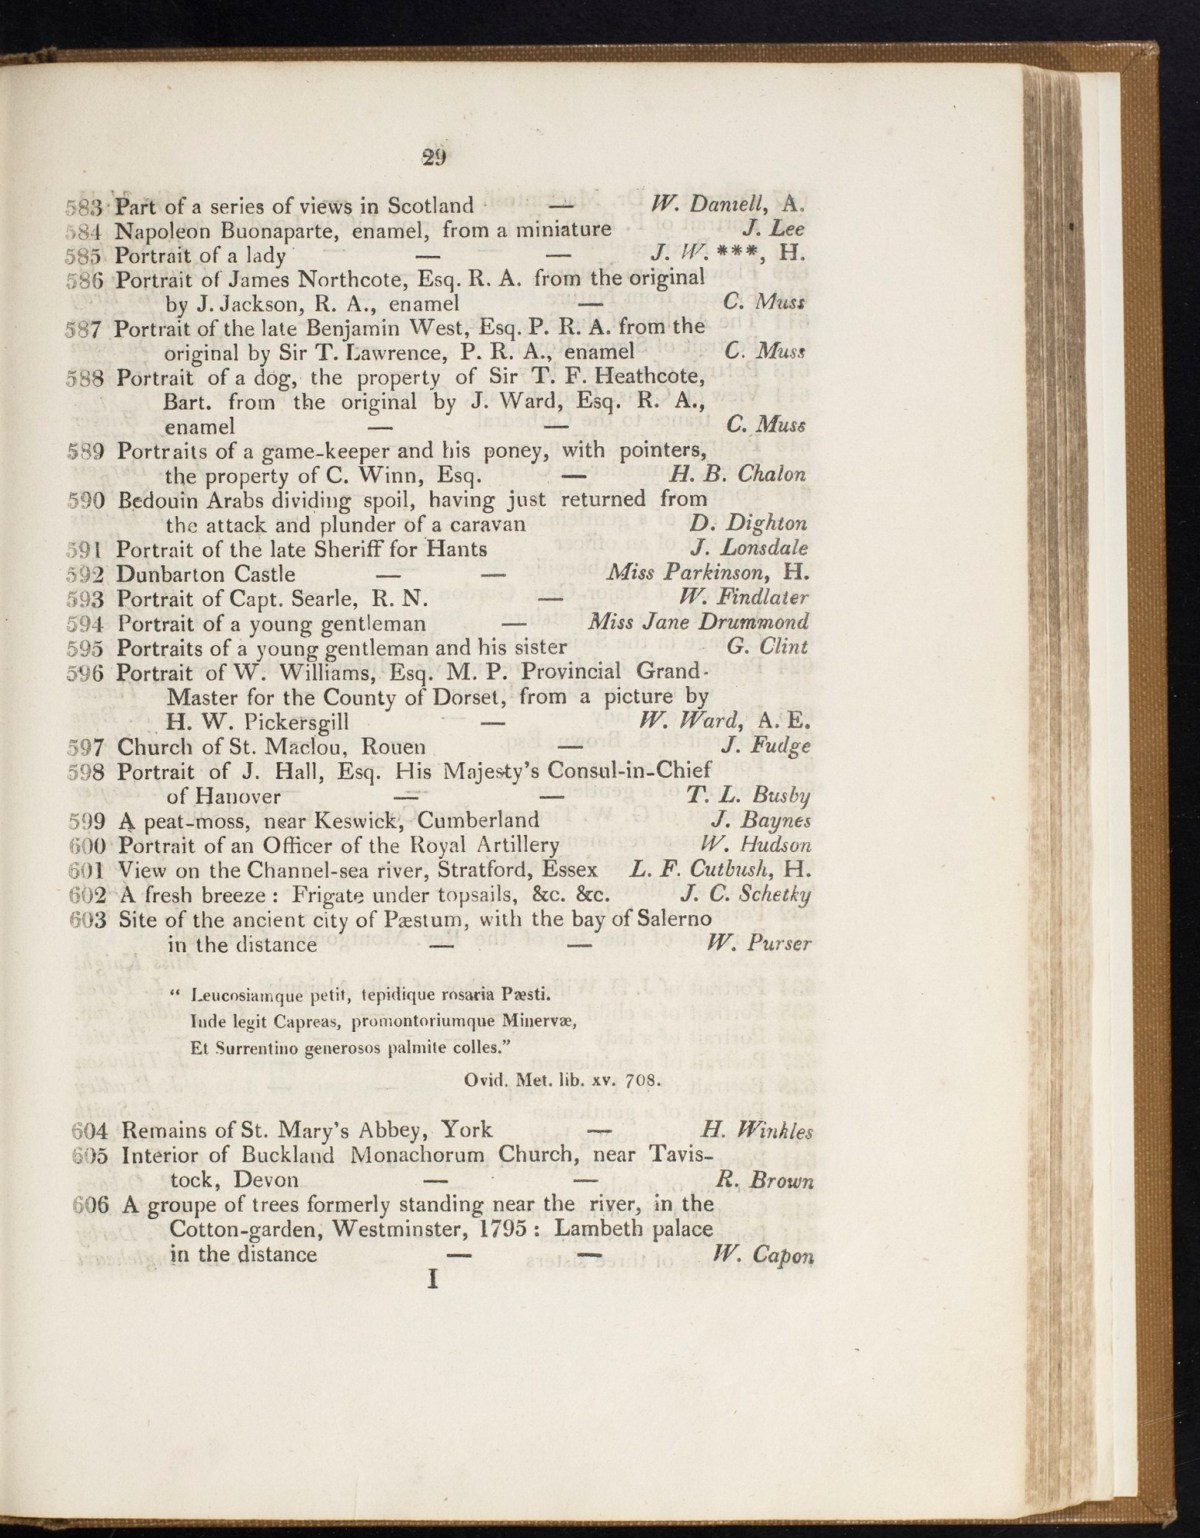 29
583 Part of a series of views in Scotland — W. Daniell, A.
584 Napoleon Buonaparte, enamel, from a miniature J. Lee
585 Portrait of a lady — — J. W. ***, H.
586 Portrait of James Northcote, Esq. R. A. from the original
by J. Jackson, R. A., enamel — C. Muss
587 Portrait of the late Benjamin West, Esq. P. R. A. from the
original by Sir T. Lawrence, P. R. A., enamel C. Muss
588 Portrait of a dog, the property of Sir T. F. Heathcote,
Bart. from the original by J. Ward, Esq. R. A.,
enamel — — C. Muss
589 Portraits of a game-keeper and his poney, with pointers,
the property of C. Winn, Esq. — H. B. Chalon
590 Bedouin Arabs dividing spoil, having just returned from
the attack and plunder of a caravan D. Dighton
591 Portrait of the late Sheriff for Hants J. Lonsdale
592 Dunbarton Castle — — Miss Parkinson, H.
593 Portrait of Capt. Searle, R. N. — W. Findlater
594 Portrait of a young gentleman — Miss Jane Drummond
595 Portraits of a young gentleman and his sister G. Clint
596 Portrait of W. Williams, Esq. M. P. Provincial Grand-
Master for the County of Dorset, from a picture by
H. W. Pickersgill — W. Ward, A. E.
597 Church of St. Maclou, Rouen — J. Fudge
598 Portrait of J. Hall, Esq. His Majesty's Consul-in-Chief
of Hanover — — T. L. Busby
599 A peat-moss, near Keswick, Cumberland J. Baynes
600 Portrait of an Officer of the Royal Artillery W. Hudson
601 View on the Channel-sea river, Stratford, Essex L. F. Cutbush, H.
602 A fresh breeze : Frigate under topsails, &c. &c. J. C. Schetky
603 Site of the ancient city of Pæstum, with the bay of Salerno
in the distance — — W. Purser
“ Leucosiamque petit, tepidique rosaria Pæsti.
Inde legit Capreas, promontoriumque Minervæ,
Et Surrentino generosos palmite colles.”
Ovid. Met. lib. xv. 708.
604 Remains of St. Mary's Abbey, York — H. Winkles
605 Interior of Buckland Monachorum Church, near Tavis-
tock, Devon — — R. Brown
606 A groupe of trees formerly standing near the river, in the
Cotton-garden, Westminster, 1795 : Lambeth palace
in the distance — — W. Capon
I